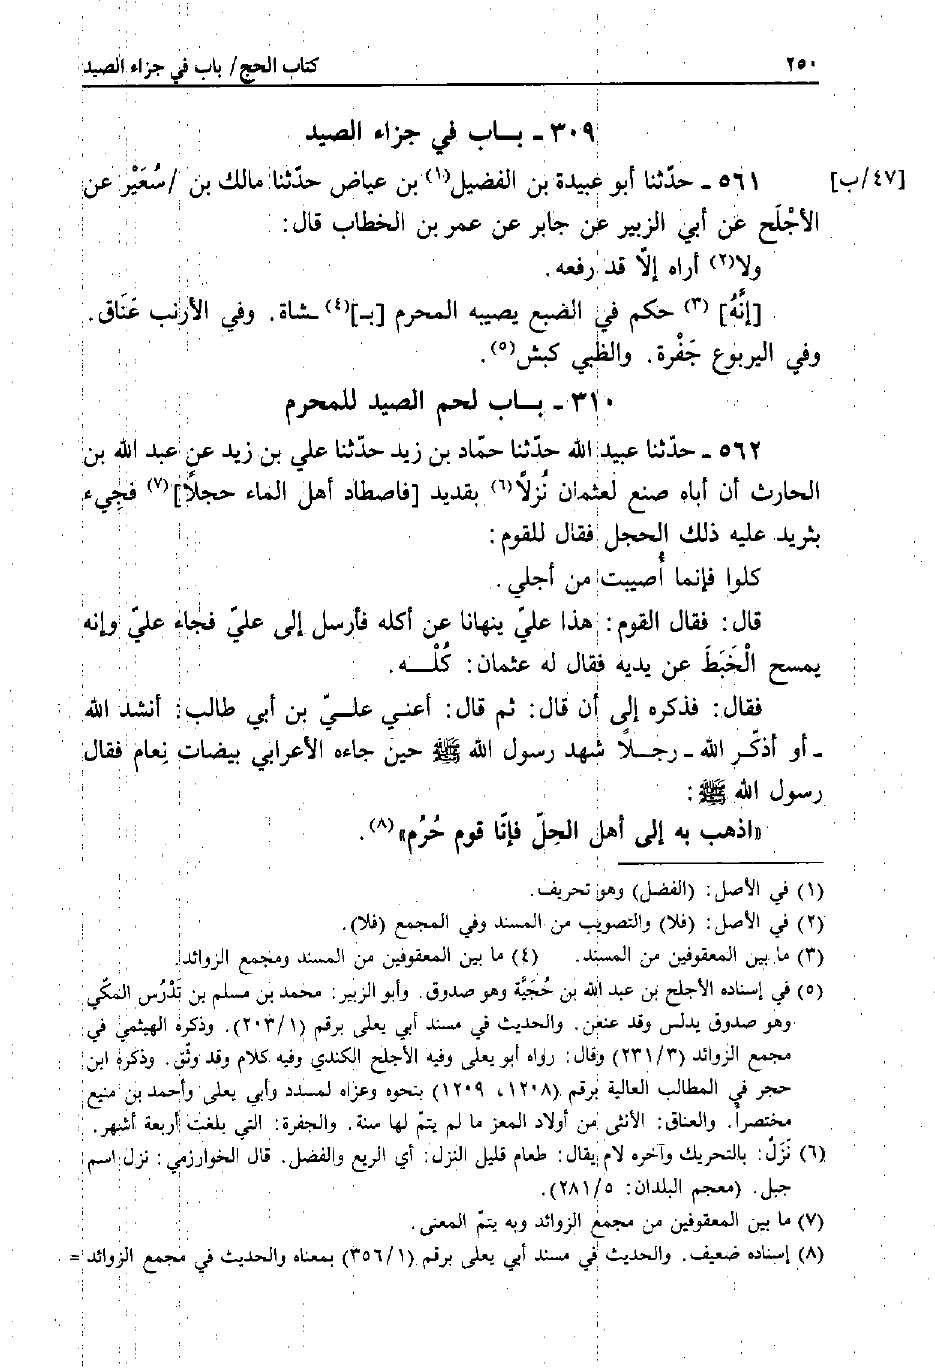 ٢٥٠ كتاب الحج/ باب في جزاء الصيد
٣٠٩ ـ بـــاب في جزاء الصيد
[٤٧/ب] ٥٦١ ـ حدّثنا أبو عبيدة بن الفضيل(١) بن عياض حدّثنا مالك بن /سُعَيْر عن
الأجْلَح عن أبي الزبير عن جابر عن عمر بن الخطاب قال:
ولا(٢) أراه إلّا قد رفعه.
[إنَّهُ] (٣) حكم في الضبع يصيبه المحرم [بـ](٤) ـشاة. وفي الأرنب عَنَاق.
وفي اليربوع جَفْرة. والظبي كبش(٥).
٣١٠ ـ بـــاب لحم الصيد للمحرم
٥٦٢ ـ حدّثنا عبيد الله حدّثنا حمّاد بن زيد حدّثنا علي بن زيد عن عبد الله بن
الحارث أن أباه صنع لعثمان نُزلًا(٦) بقديد [فاصطاد أهل الماء حجلًا](٧) فجيء
بثريد عليه ذلك الحجل فقال للقوم:
كلوا فإنما أُصيبت من أجلي.
قال: فقال القوم: هذا عليّ ينهانا عن أكله فأرسل إلى عليّ فجاء عليّ وإنه
يمسح الْخَبَطَ عن يديه فقال له عثمان: كُلْـــه.
فقال: فذكره إلى أن قال: ثم قال: أعني علـيّ بن أبي طالب: أنشد الله
ـ أو أذكّر الله ـ رجـــلًا شهد رسول الله ﷺ حين جاءه الأعرابي ببيضات نِعام فقال
رسول الله ﷺ:
«اذهب به إلى أهل الحِلّ فإنّا قوم حُرُم»(٨).
(١) في الأصل: (الفضل) وهو تحريف.
(٢) في الأصل: (فلا) والتصويب من المسند وفي المجمع (فلا).
(٣) ما بين المعقوفين من المسند. (٤) ما بين المعقوفين من المسند ومجمع الزوائد.
(٥) في إسناده الأجلح بن عبد الله بن حُجَيَّة وهو صدوق. وأبو الزبير: محمد بن مسلم بن تَدْرُس المكّي
وهو صدوق يدلس وقد عنعن. والحديث في مسند أبي يعلى برقم (٢٠٣/١). وذكره الهيثمي في
مجمع الزوائد (٢٣١/٣) وقال: رواه أبو يعلى وفيه الأجلح الكندي وفيه كلام وقد وثّق. وذكره ابن
حجر في المطالب العالية برقم (١٢٠٨، ١٢٠٩) بنحوه وعزاه لمسدد وأبي يعلى وأحمد بن منيع
مختصراً. والعناق: الأنثى من أولاد المعز ما لم يتمّ لها سنة. والجفرة: التي بلغت أربعة أشهر.
(٦) نَزَلْ: بالتحريك وآخره لام يقال: طعام قليل النزل: أي الريع والفضل. قال الخوارزمي: نزل اسم
جبل. (معجم البلدان: ٢٨١/٥).
(٧) ما بين المعقوفين من مجمع الزوائد وبه يتمّ المعنى.
(٨) إسناده ضعيف. والحديث في مسند أبي يعلى برقم (٣٥٦/١) بمعناه والحديث في مجمع الزوائد =